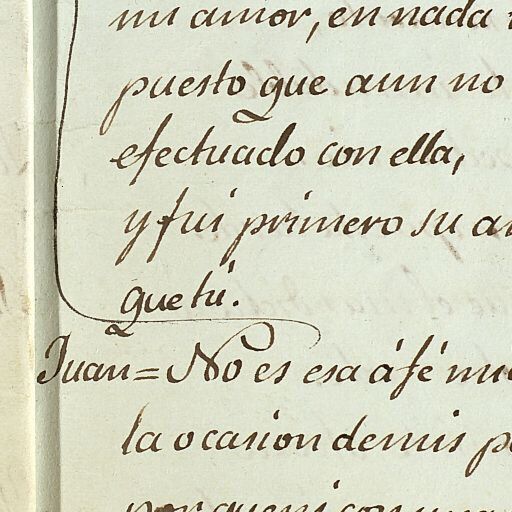 mi amor, en nada
puesto que aun no
efectuado con ella,
y fui primero su
que tú.
Juan = No es esa á fé
la ocasion de mis
por que ni con